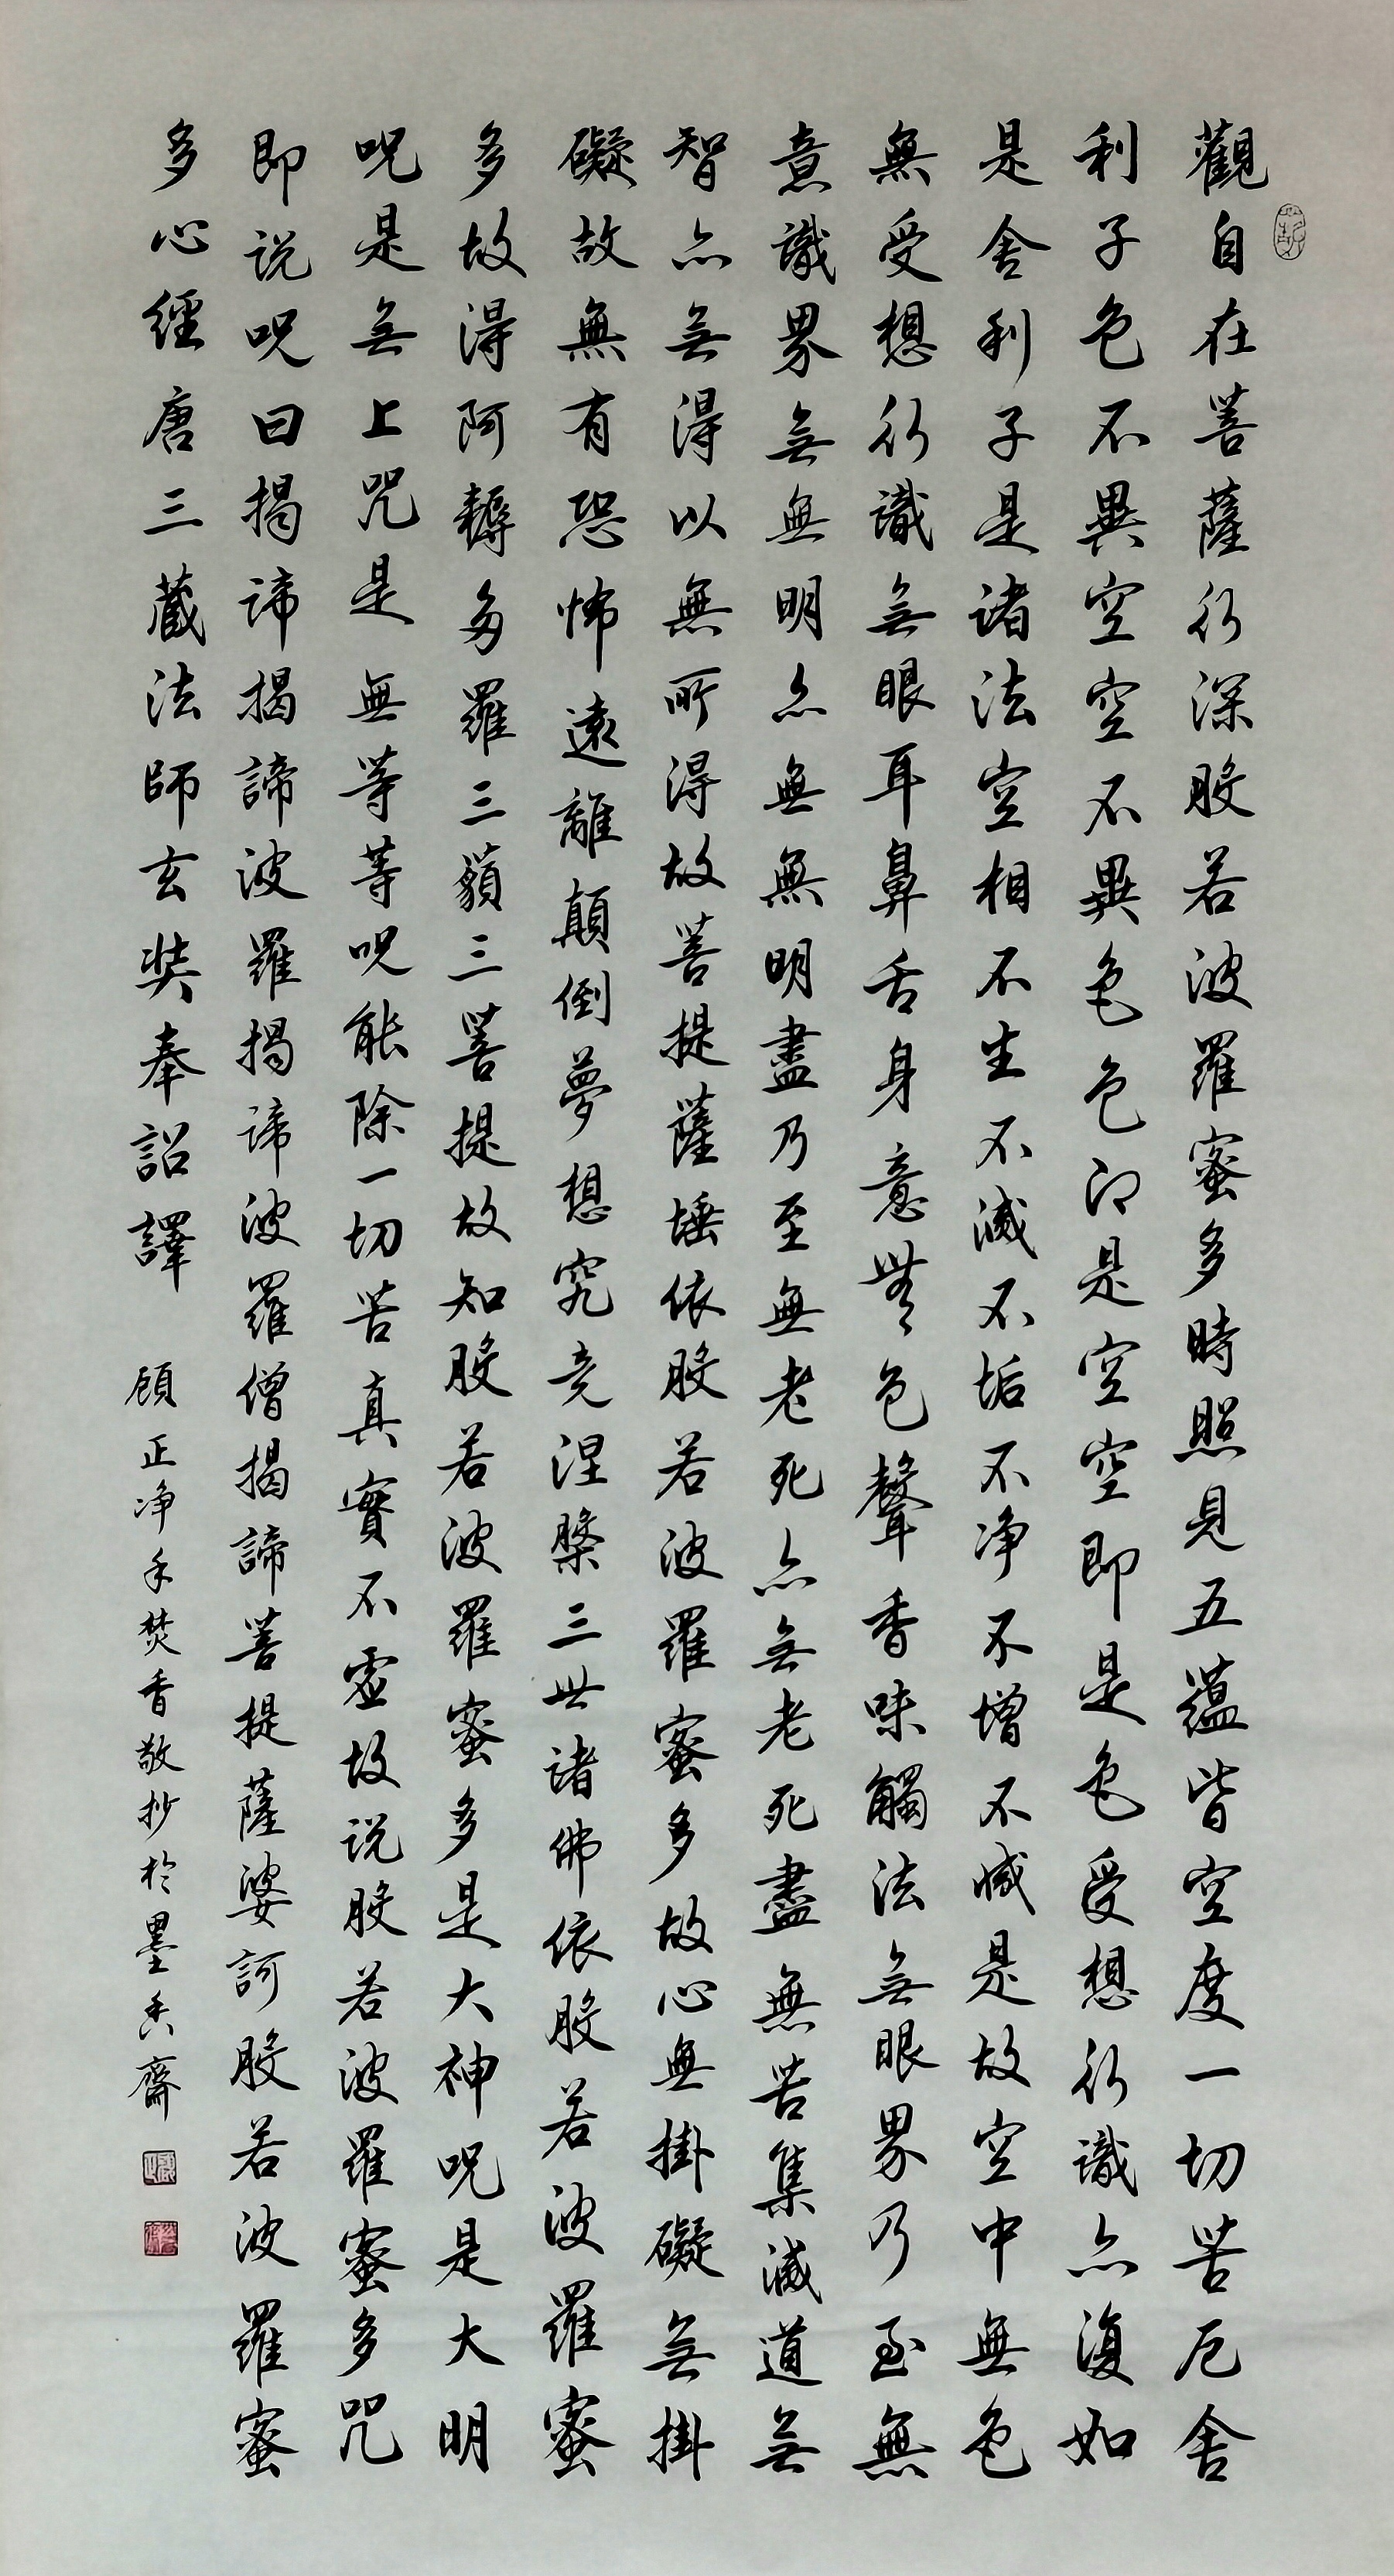 觀自在菩薩行深般若波羅蜜多時照見五蘊皆空度一切苦厄舍
利子色不異空空不異色色即是空空即是色受想行識亦復如
是舍利子是諸法空相不生不滅不垢不净不增不減是故空中無色
無受想行識無眼耳鼻舌身意無色聲香味觸法無眼界乃至無
意識界無無明亦無無明盡乃至無老死亦無老死盡無苦集滅道無
智亦無得以無所得故菩提薩埵依般若波羅蜜多故心無掛礙無掛
礙故無有恐怖遠離顛倒夢想究竟涅槃三世諸佛依般若波羅蜜
多故得阿耨多羅三藐三菩提故知般若波羅蜜多是大神呪是大明
呪是無上咒是無等等呪能除一切苦真實不虛故说般若波羅蜜多咒
即说呪曰揭諦揭諦波羅揭諦波羅僧揭諦菩提薩婆訶般若波羅蜜
多心經唐三藏法師玄奘奉詔譯
顾正净手焚香敬抄於墨香齋